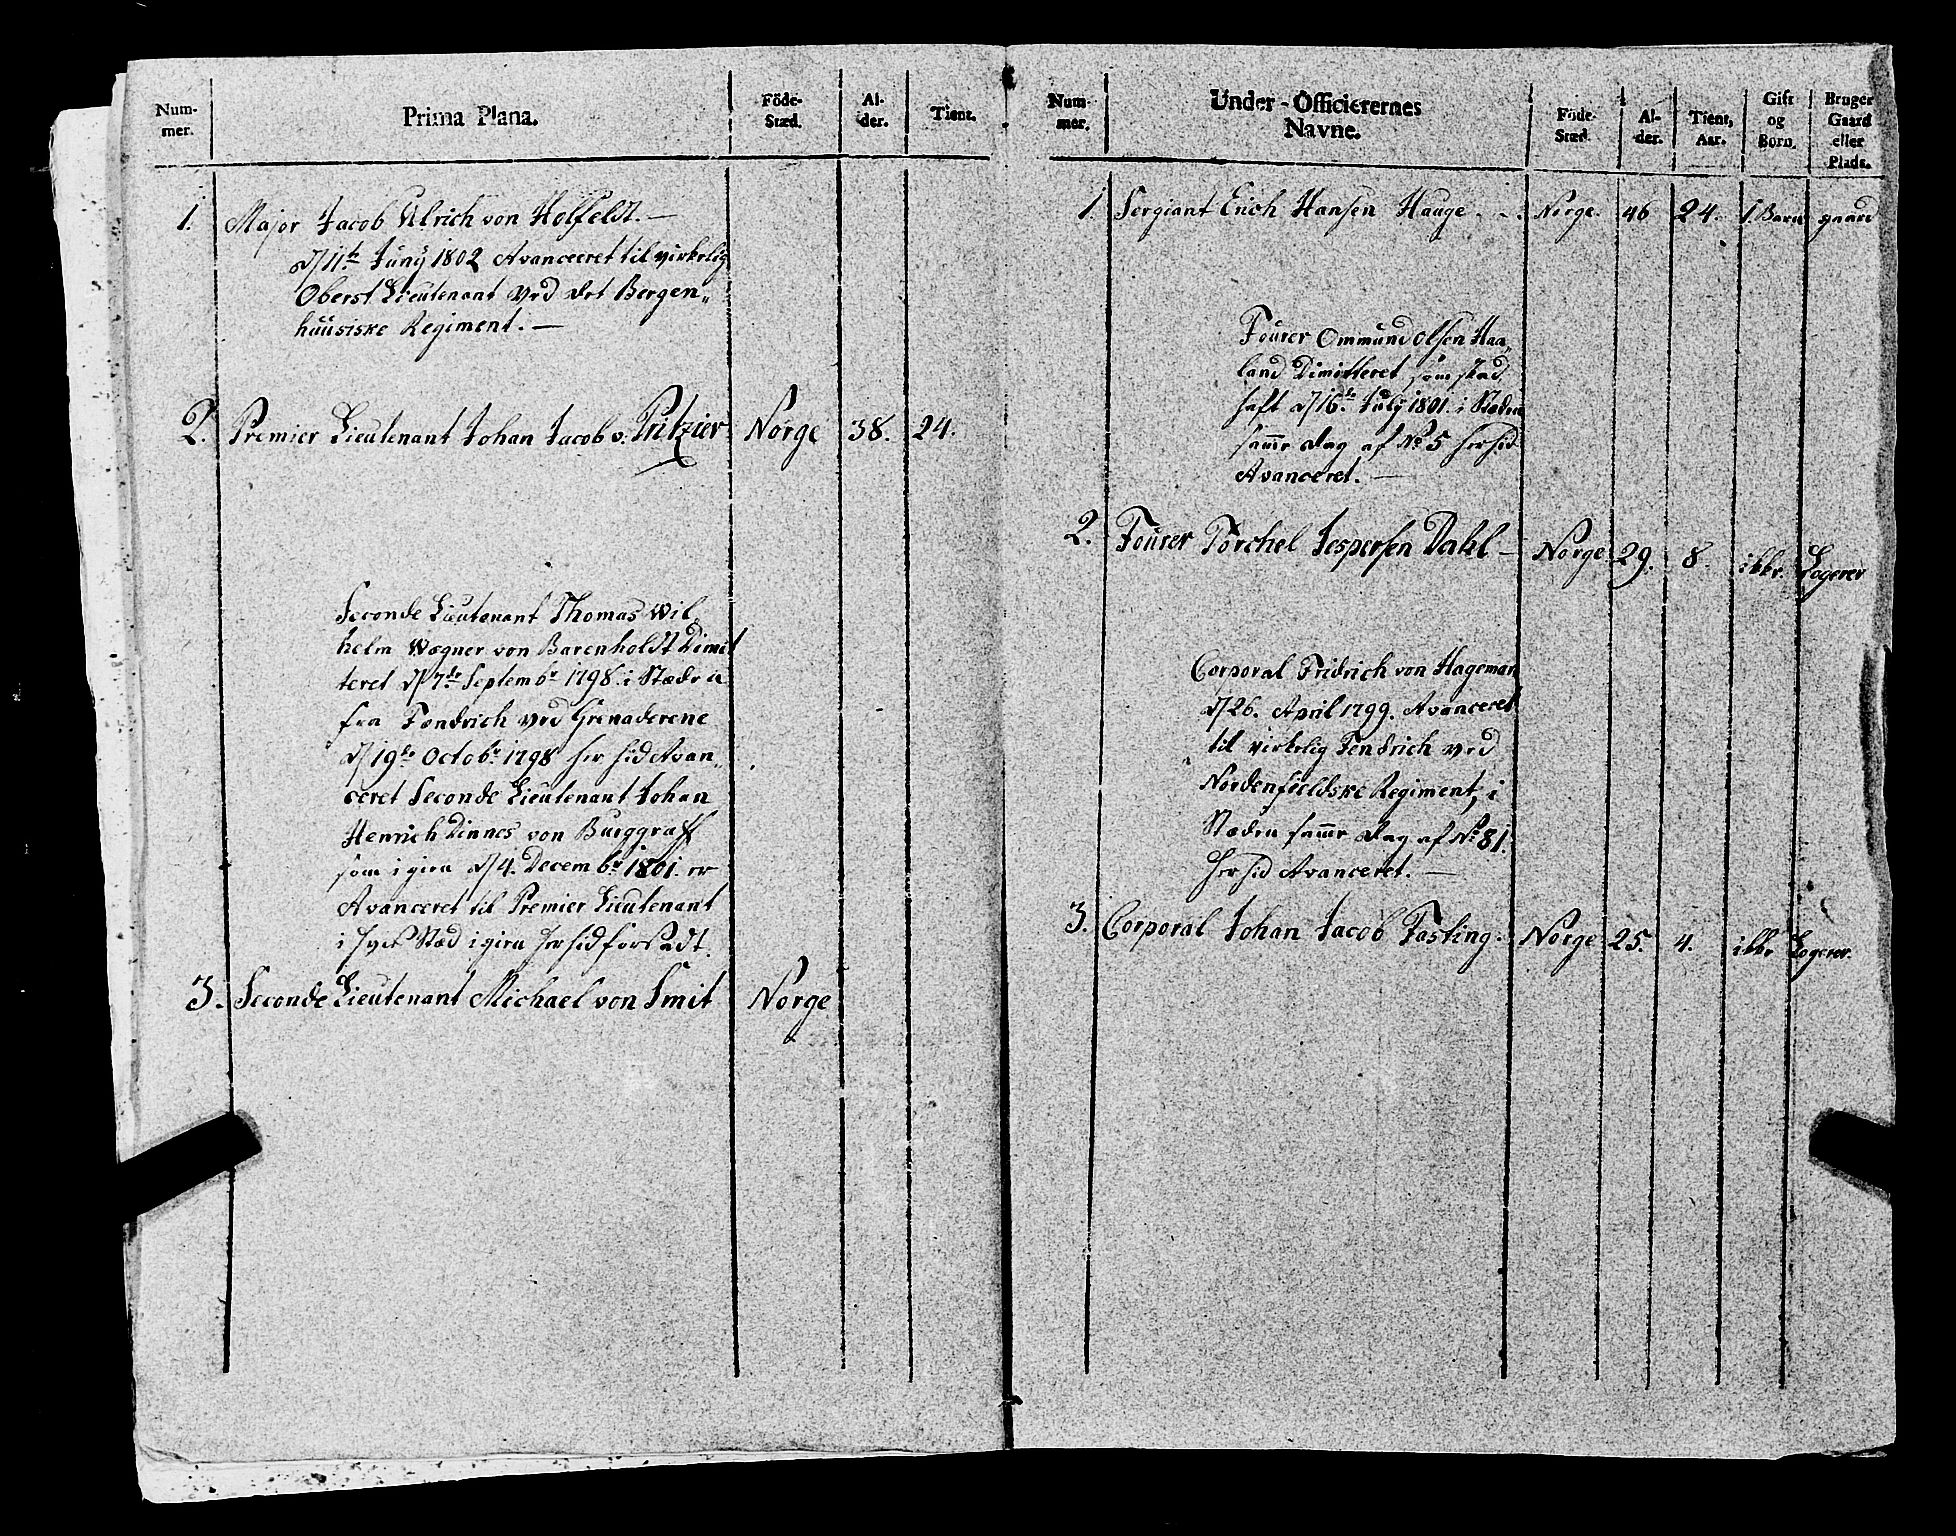 Num-
mer.
Prima Plana.
Föde-
Stæd.
Al-
der.
Tient.
1. Major Jacob Ulrich von Holfeldt. —
d/11te Juny 1802 Avanceeret til virkelig
Oberst Lieutenant ved det Bergen„
huusiske Regiment. —
2. Premier Lieutenant Johan Jacob v: Pritzier Norge 38. 24.
Seconde Lieutenant Thomas Wil„
helm Wegner von Barenholdt Dimit
teret d/7de Septembr 1798. i Stæden
fra Fændrich ved Grenaderene
d/19de Octobr 1798 her hid Avan„
ceret Seconde Lieutenant Johan
Henrich Dinnes von Burggraff
som igien d/4. Decembr 1801. er
Avanceret til Premier Lieutenant
i hvis Stæd igien her hid forsadt.
3. Seconde Lieutenant Michael von Smit Norge
Num-
mer.
Under-Officierernes
Navne.
Föde-
Stæd
Al-
der.
Tient,
Aar.
Gift
og
Börn.
Bruger
Gaard
eller
Plads.
1. Sergiant Erich Hansen Hauge. Norge. 46 24. 1. Barn gaard
Fourer Ommund Olsen Haa„
land Dimitteret som skad
haft d/16de July 1801. i Stæden
samme dag af No 5 her hid
Avanceret. —
2. Fourer Torchel Jespersen Dahl — Norge 29. 8. ikke. Logerer
Corporal Fridrich von Hageman
d/26. April 1799. Avanceret
til virkelig Fendrich ved
Nordenfieldske Regiment, i
Stæden samme dag af No 81.
her hid Avanceret. —
3. Corporal Johan Jacob Fasting. Norge 25. 4. ikke Logerer.